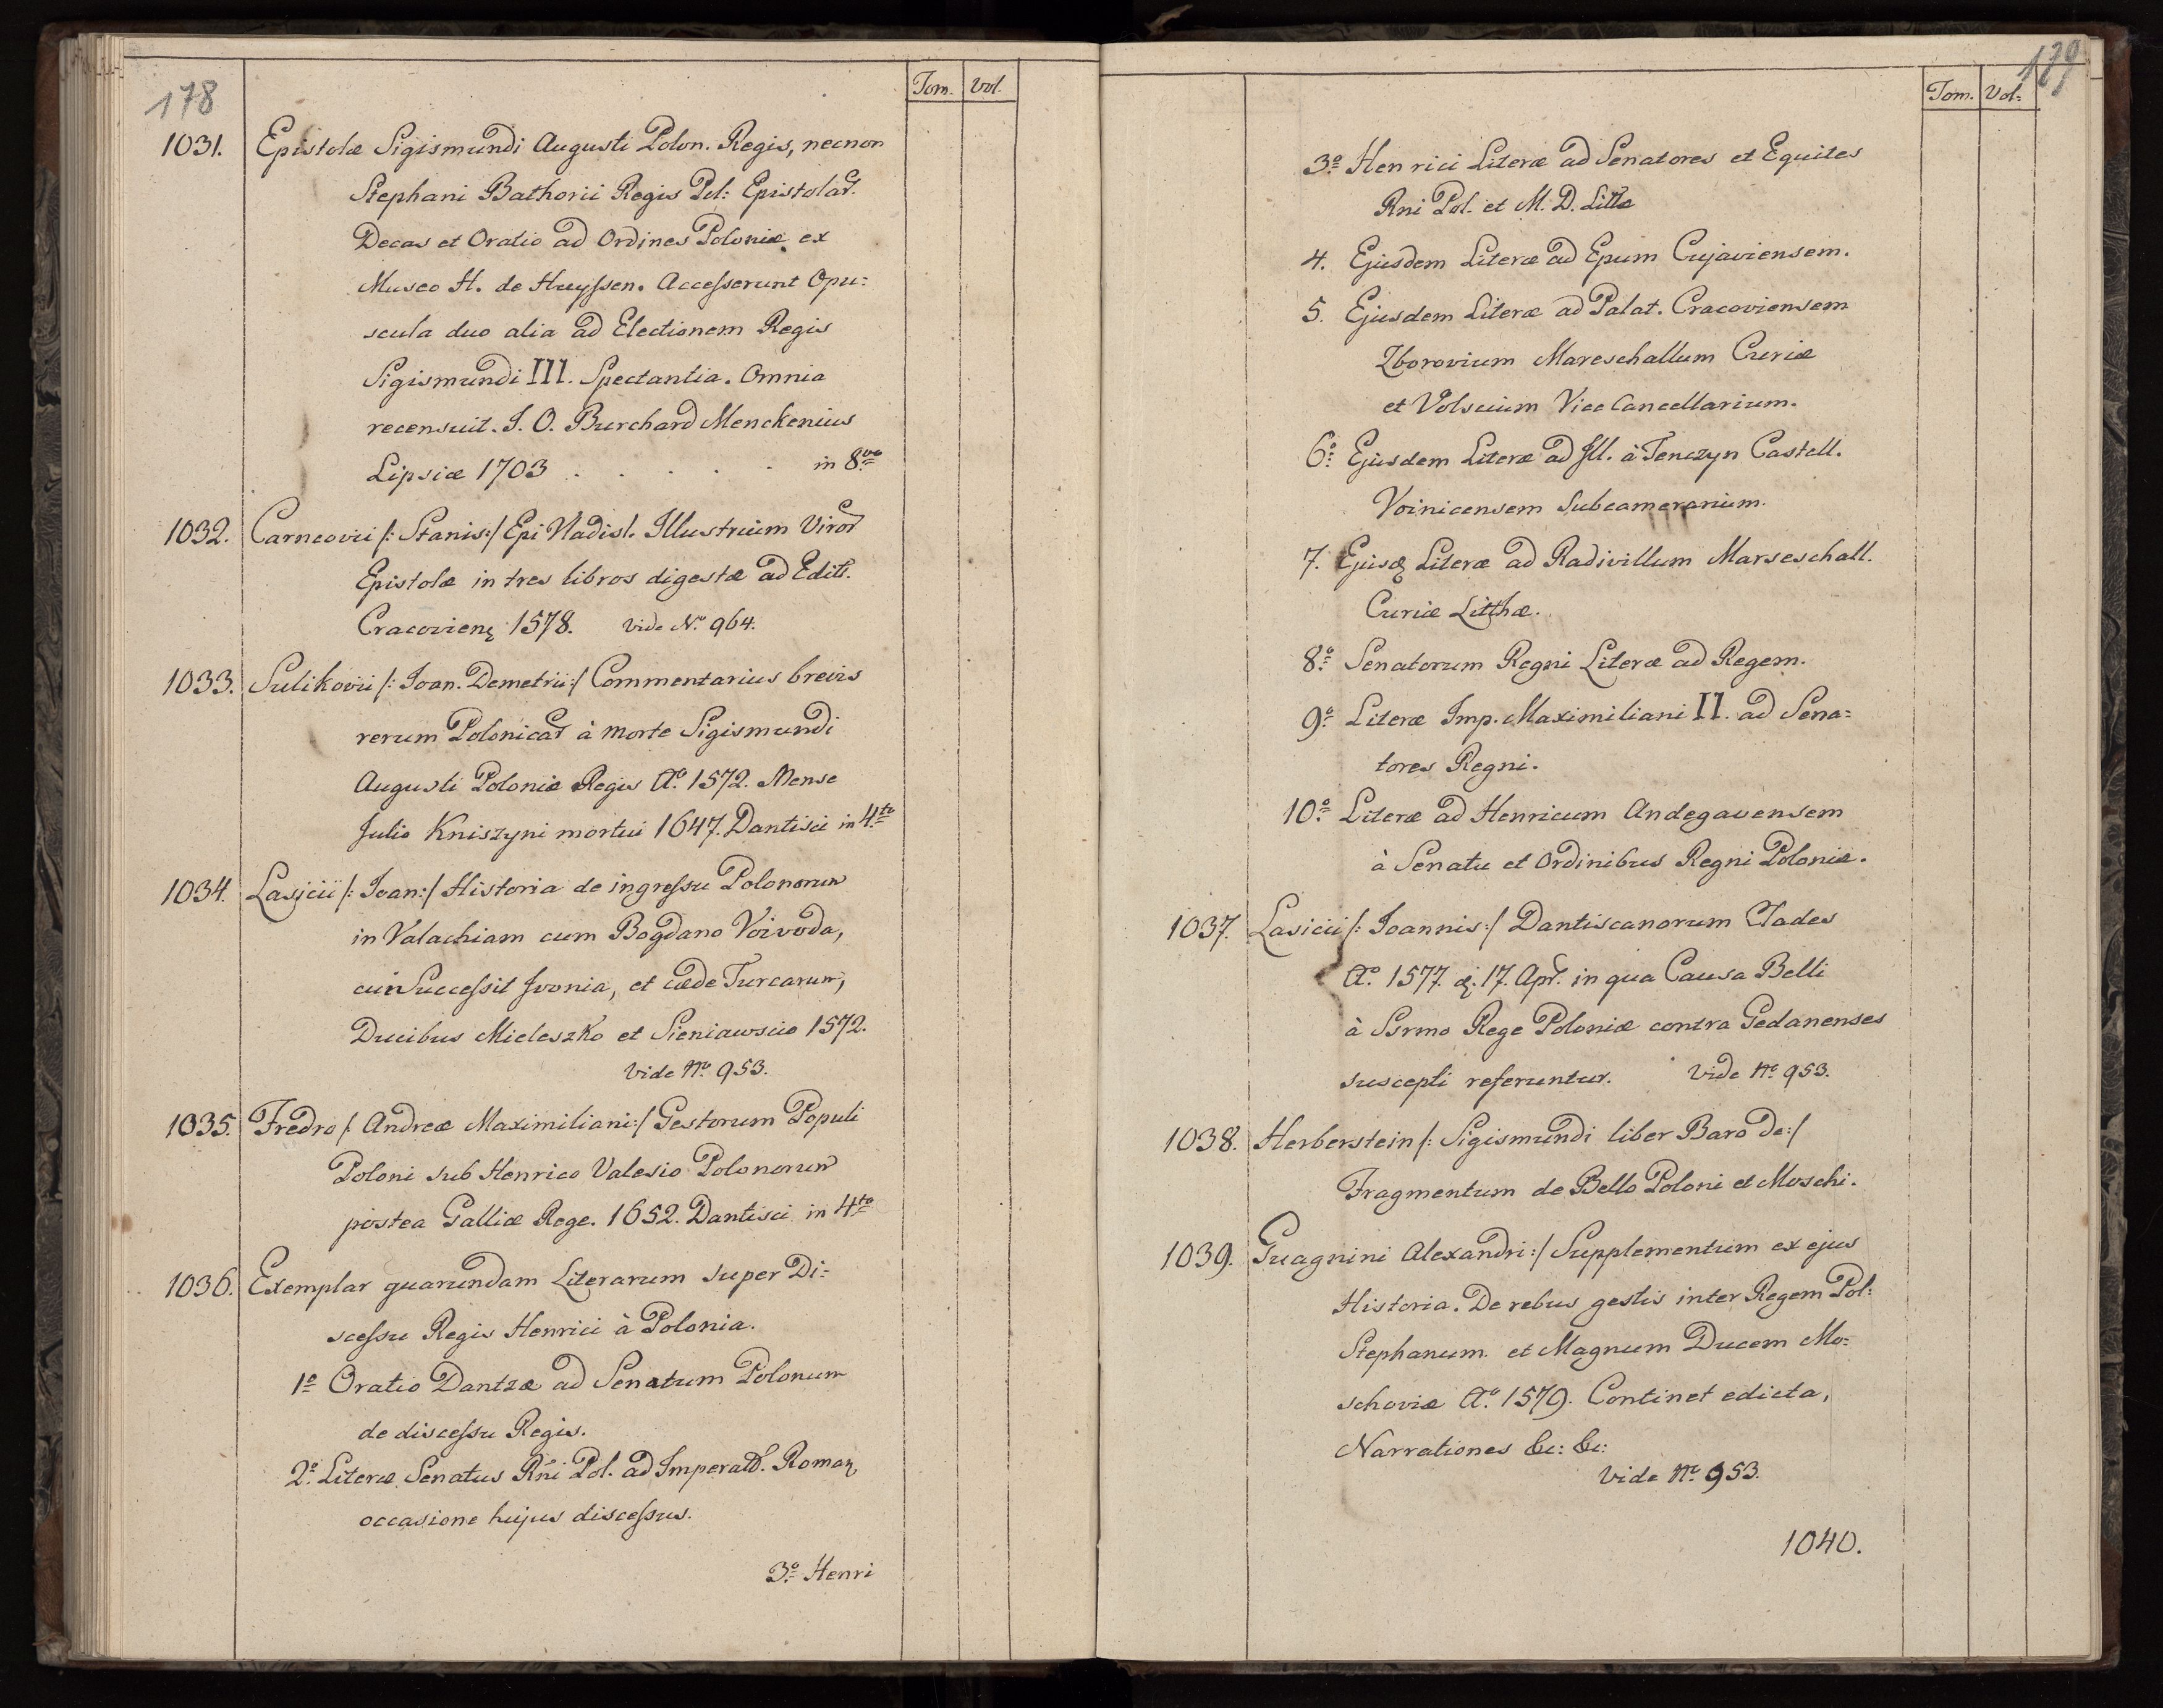 178
Tom. Vol.
1031. Epistolæ Sigismundi Augusti Polon. Regis, necnon
Stephani Bathorii Regis Pol: Epistolar.
Decas et Oratio ad Ordines Poloniæ ex
Museo H. de Huyssen. Accesserunt Opu=
scula duo alia ad Electionem Regis
Sigismundi III. Spectantia. Omnia
recensuit. I. O. Burchard Menckenius
Lipsiæ 1703 . . . . . in 8vo
1032. Carncovii /: Stanis:/ Epi Vladisl. Illustrium Viror
Epistolæ in tres libros digestæ ad Edit.
Cracovien 1578. vide No. 964.
1033. Sulikovii /: Ioan. Demetrii:/ Commentarius brevis
rerum Polonicar à morte Sigismundi
Augusti Poloniæ Regis Ao. 1572. Mense
Julio Kniszyni mortui 1647. Dantisci in 4to
1034. Lasicii /: Ioan:/ Historia de ingressu Polonorum
in Valachiam cum Bogdano Voivoda,
cui Successit Ivonia, et cæde Turcarum,
Ducibus Mieleszko et Sieniawscio 1572.
vide No. 953.
1035. Fredro /: Andreæ Maximiliani:/ Gestorum Populi
Poloni sub Henrico Valesio Polonorum
postea Galliæ Rege. 1652. Dantisci in 4to
1036. Exemplar quarundam Literarum super Di=
scessu Regis Henrici à Polonia.
1o Oratio Dantzæ ad Senatum Polonum
de discessu Regis.
2o. Literæ Senatus Rni Pol. ad Imperat. Roman
occasione hujus discessus.
3o. Henri
179
Tom. Vol:
3o Henrici Literæ ad Senatores et Equites
Rni Pol. et M. D. Littæ
4. Ejusdem Literæ ad Epum Cujaviensem.
5. Ejusdem Literæ ad Palat. Cracoviensem
Zborovium Mareschallum Curiæ
et Volscium Vice Cancellarium.
6o. Ejusdem Literæ ad Ill. à Tenczyn Castell.
Voinicensem Subcamerarium.
7. Ejusd Literæ ad Radivillum Marseschall.
Curiæ Litthæ.
8o. Senatorum Regni Literæ ad Regem.
9o. Literæ Imp. Maximiliani II. ad Sena=
tores Regni.
10o. Literæ ad Henricum Andegavensem
à Senatu et Ordinibus Regni Poloniæ.
1037. Lasicii /: Ioannis:/ Dantiscanorum Clades
Ao. 1577. d. 17. Apr. in qua Causa Belli
à Ssrmo Rege Poloniæ contra Gedanenses
suscepti referuntur. vide No. 953.
1038. Herberstein /: Sigismundi liber Baro de:/
Fragmentum de Bello Poloni et Moschi.
1039. Guagnini Alexandri:/ Supplementum ex ejus
Historia. De rebus gestis inter Regem Pol:
Stephanum et Magnum Ducem Mo=
schoviæ Ao. 1579. Continet edicta,
Narrationes &c: &c:
vide No. 953.
1040.